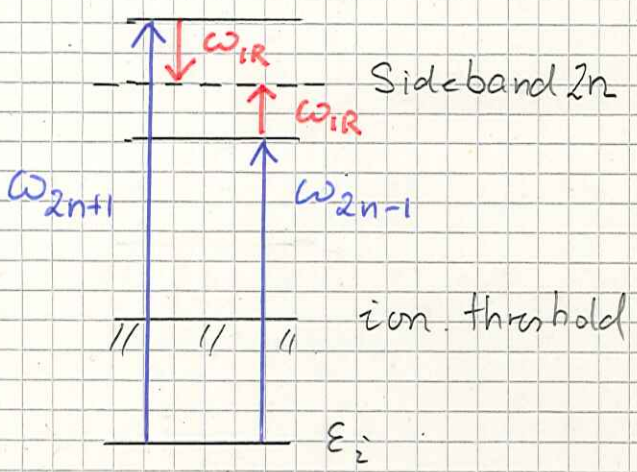 ω_IR
Sideband 2n
ω_IR
ω_2n+1
ω_2n-1
ion. threshold
ε_i